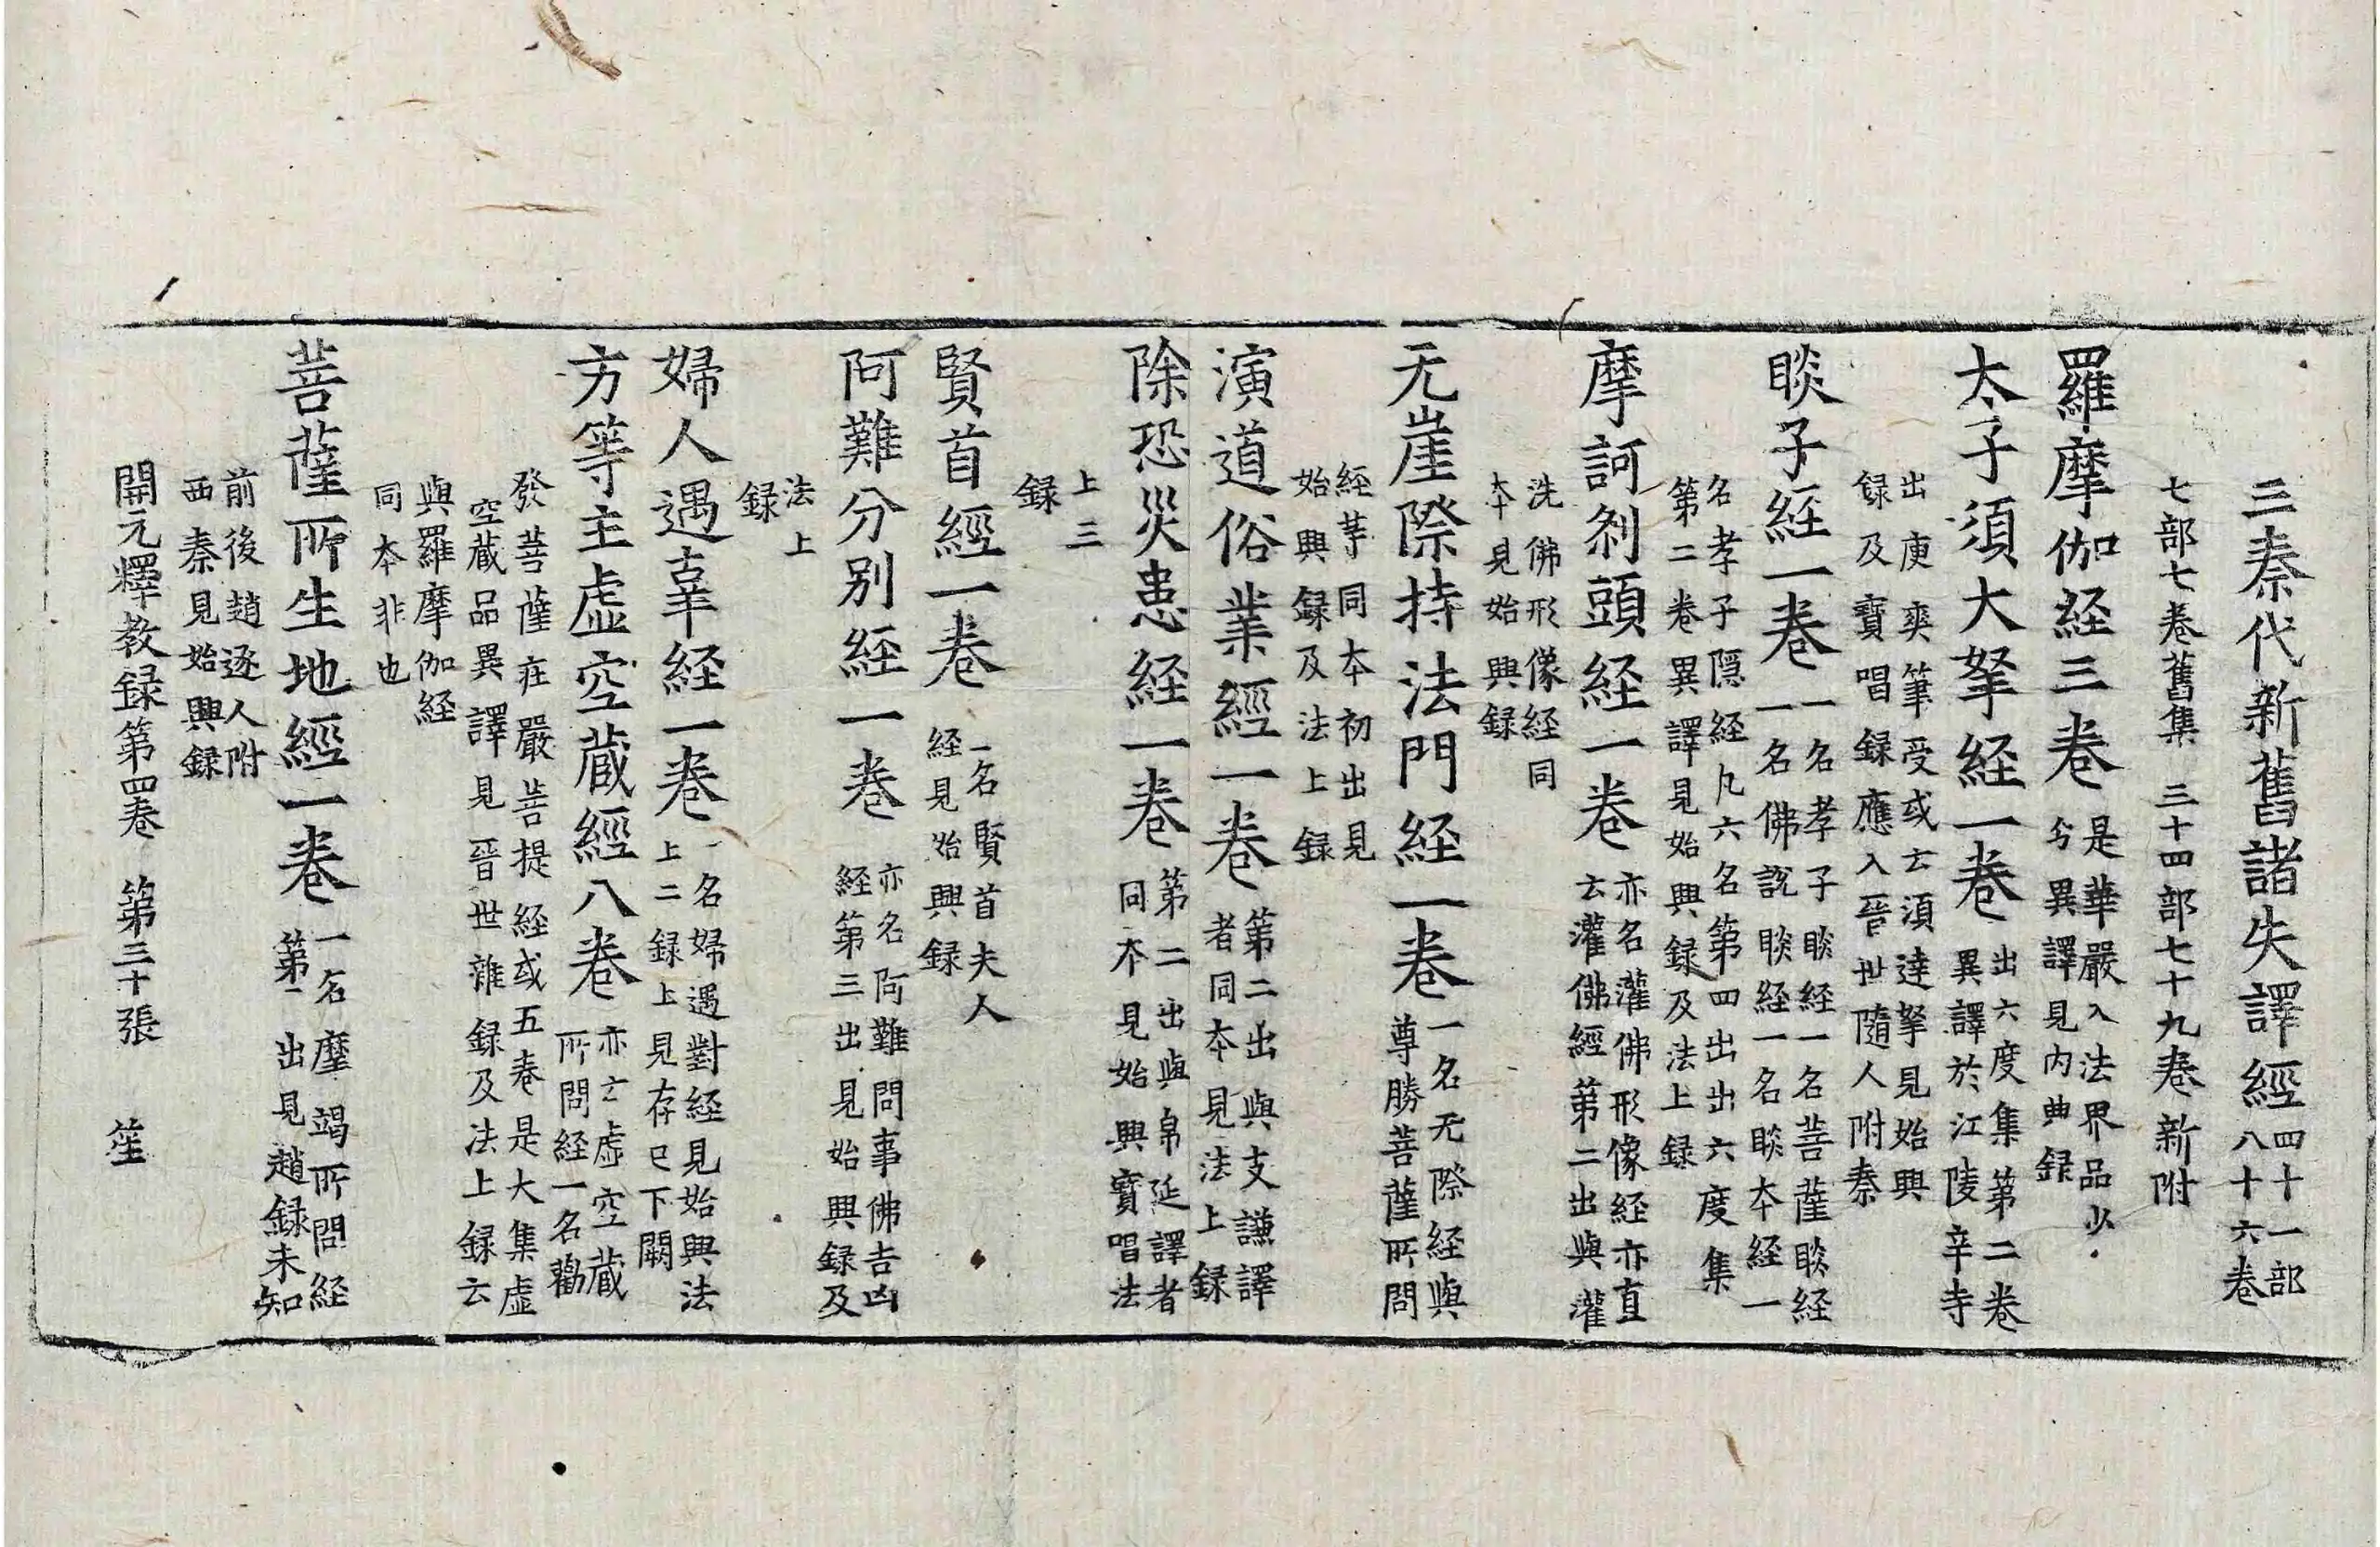 三秦代新舊諸失譯經四十一部八十六卷
七部七卷舊集　三十四部七十九卷新附
羅摩伽経三卷是華嚴入法界品少分異譯見内典録
太子須大拏経一卷出六度集第二卷異譯於江陵辛寺
出庾爽筆受或云須達拏見始興録及寶唱録應入晉世隨人附秦
睒子経一卷一名孝子睒経一名菩薩睒経一名佛說睒経一名睒本経一
名孝子隱経凡六名第四出出六度集第二卷異譯見始興録及法上録
摩訶剎頭経一卷亦名灌佛形像経亦直云灌佛經第二出與灌
洗佛形像経同本見始興録
无崖際持法門経一卷一名无際経與尊勝菩薩所問
経等同本初出見始興録及法上録
演道俗業經一卷第二出與支謙譯者同本見法上録
除恐災患経一卷第二出與帛延譯者同本見始興寶唱法
上三録
賢首經一卷一名賢首夫人経見始興録
阿難分别経一卷亦名阿難問事佛吉凶経第三出見始興録及
法上録
婦人遇辜経一卷一名婦遇對経見始興法上二録上見存已下闕
方等主虚空蔵經八卷亦云虚空蔵所問経一名勸
發菩薩莊嚴菩提経或五卷是大集虚空蔵品異譯見晉世雜録及法上録云
與羅摩伽経同本非也
菩薩所生地經一卷一名摩竭所問経第一出見趙録未知
前後趙逐人附西秦見始興録
開元釋教録第四卷　第三十張　笙